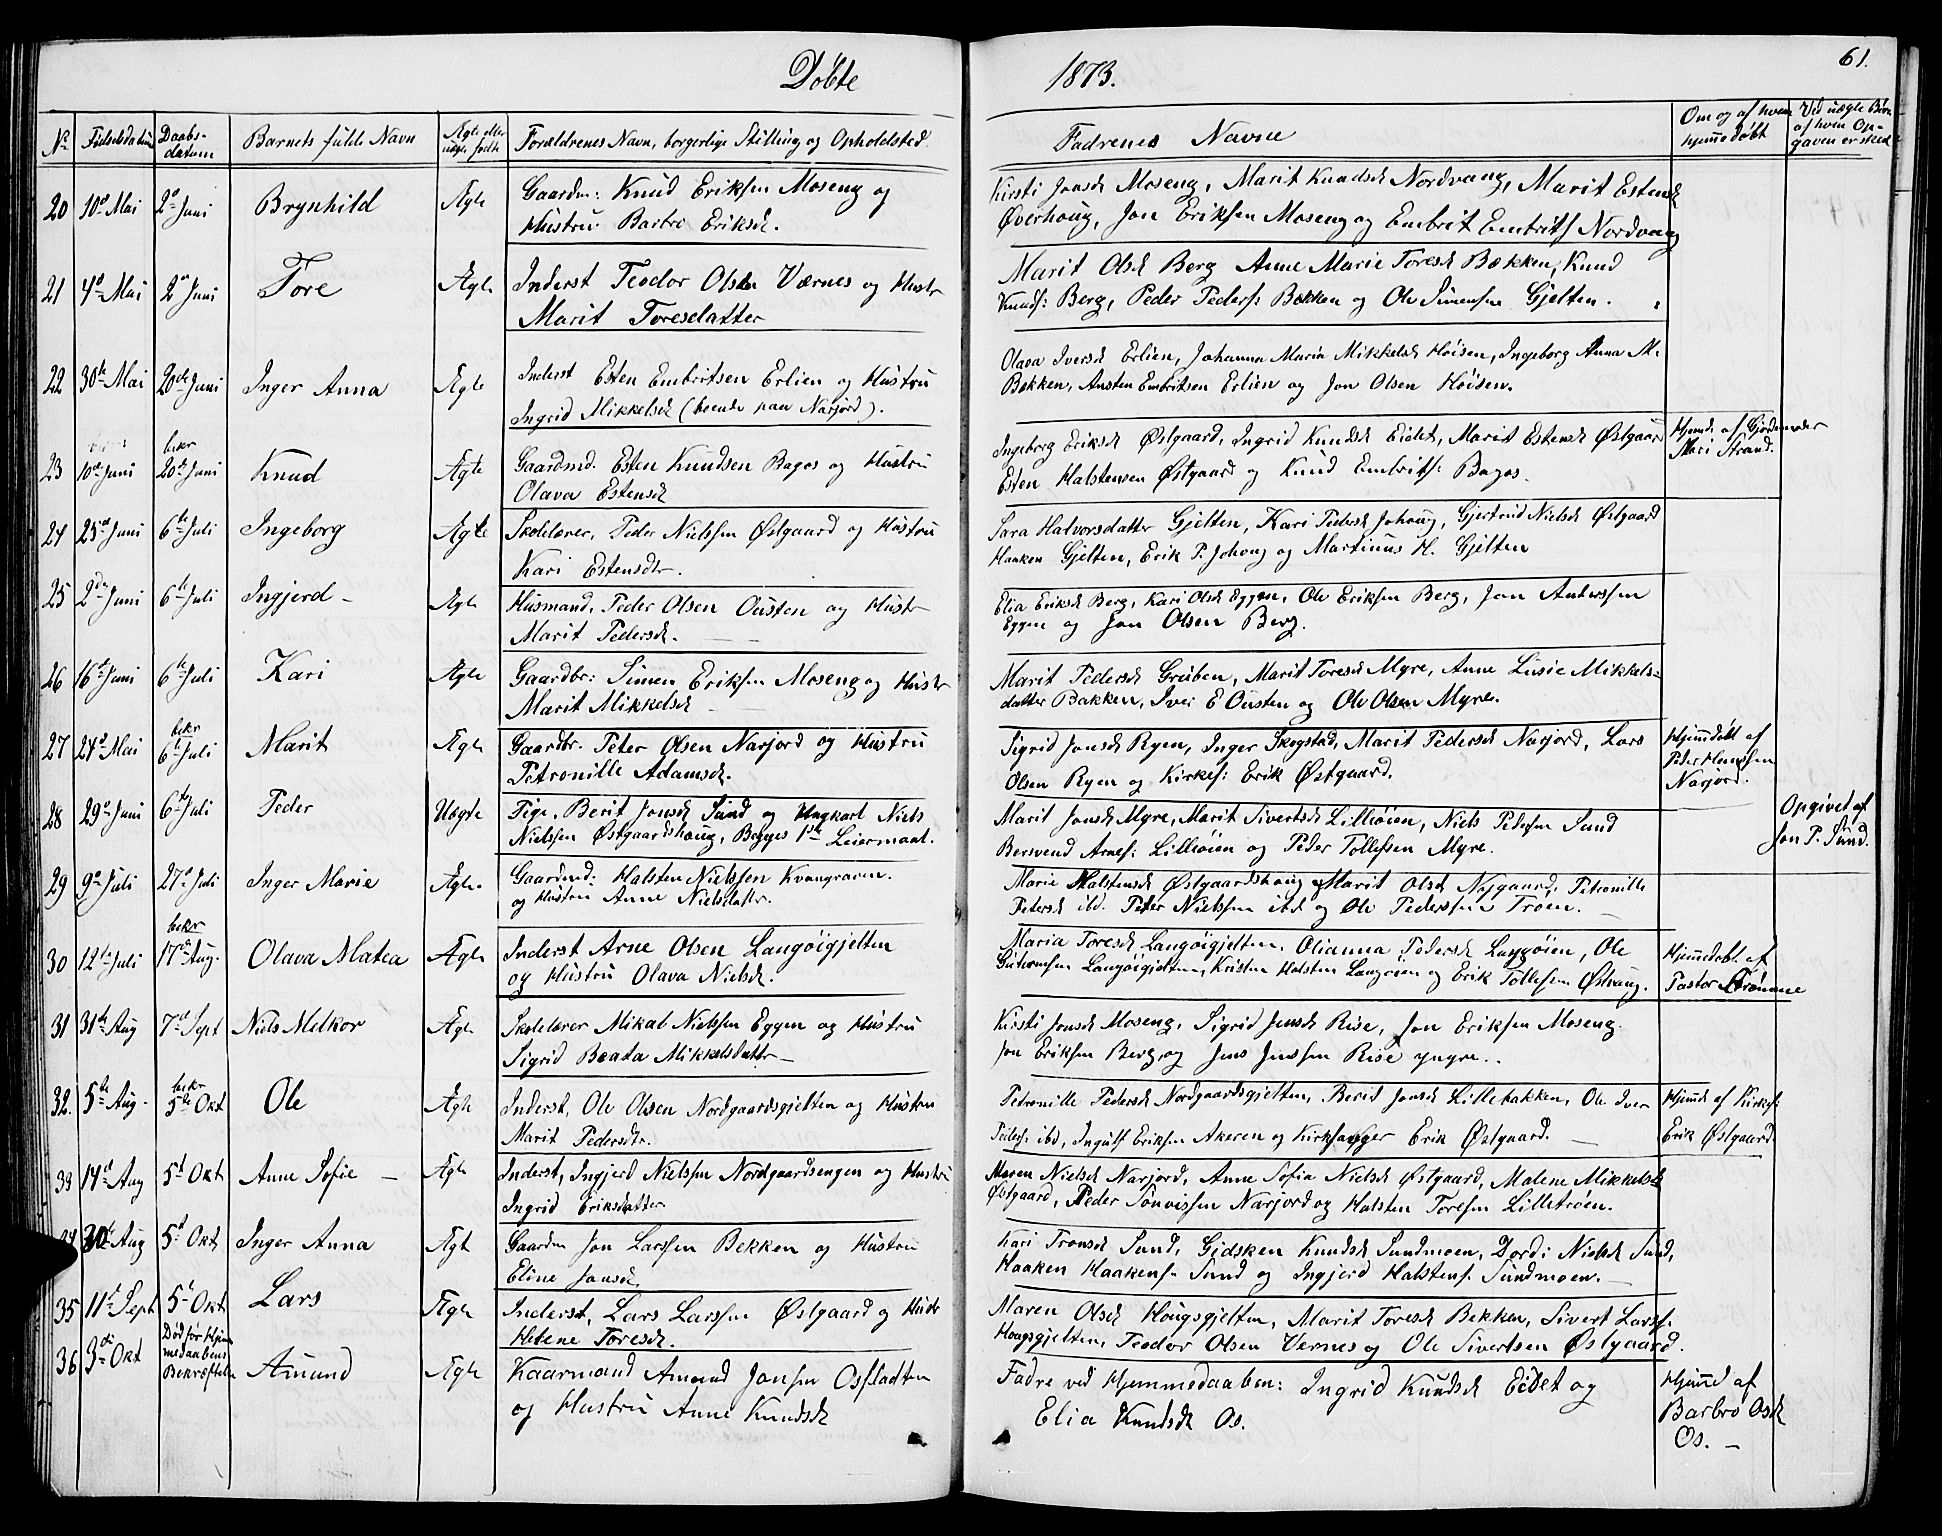 Døbte 1873. 61.
No Fødselsdatum Daabsdatum Barnets fulde Navn Ægte eller uægte født Forældrenes Navn, borgerlige Stilling og Opholdsted. Fadrenes Navne Om og af hvem hjemmedøbt Ved uægte Børn af hvem Opgaven er skeet
20 10de Mai 2den Juni Brynhild Ægte Gaardm: Knud Eriksen Moseng og
Hustru Barbro Eriksd.
Kirsti Jonsd Moseng, Marit Knudsd Nordvang, Marit Estensd
Øverhoug, Jon Eriksen Moseng og Embrit Embrits Nordvang
21 4de Mai 2den Juni Tore Ægte Inderst Teodor Olsen Værnes og Hustr
Marit Toresdatter
Marit Olsd Berg Anne Marie Toresd Bækken, Knud
Knuds: Berg, Peder Peders: Bækken og Ole Simensen Gjelten.
22 30te Mai 20de Juni Inger Anna Ægte Inderst Esten Embritsen Erlien og Hustru
Ingrid Mikkelsd (boende paa Narjord).
Olava Iversd Erlien, Johanna Maria Mikkelsd Høisen, Ingeborg Anna M.
Bekken, Austen Embritsen Erlien og Jon Olsen Høisen.
23 10de Juni bekr 20de Juni Knud Ægte Gaardmd. Esten Knudsen Bagos og Hustru
Olava Estensd
Ingeborg Eriksd Østgaard, Ingrid Knudsd Eidet, Marit Estensd Østgaard
Esten Halstensen Østgaard og Knud Embrits: Bagos.
Hjemd. af Gjordemoder
Mari Strand.
24 25de Juni 6te Juli Ingeborg Ægte Skolelærer, Peder Nielssen Østgaard og Hustru
Kari Estensdtr.
Sara Halvorsdatter Gjelten, Kari Pedersd Johoug, Gjertrud Nielsd Østgaard
Haaken Gjelten, Erik P. Johoug og Martinus H. Gjelten
25 2den Juni 6te Juli Ingjerd - Ægte Husmand, Peder Olsen Ousten og Hustr
Marit Pedersd.
Elia Eriksd Berg, Kari Olsd Eggen, Ole Eriksen Berg, Jon Anderssen
Eggen og Jon Olsen Berg.
26 16de Juni 6te Juli Kari Ægte Gaardbr: Simen Eriksen Moseng og Hustr
Marit Mikkelsd
Marit Pedersd Gruben, Marit Toresd Myre, Anne Lusie Mikkels-
datter Bakken, Iver E Ousten og Ole Olsen Myre.
27 24de Mai bekr 6te Juli Marit Ægte Gaardbr. Peter Olsen Narjord og Hustru
Petronille Adamsd.
Sigrid Jonsd Ryen, Inger Skogstad, Marit Pedersd Narjord, Lars
Olsen Ryen og Kirkes: Erik Østgaard.
Hjemmdøbt af
Peder Hemssen
Nagjord.
28 29de Juni 6te Juli Peder Uægte Pige, Berit Jonsd Sund og Ungkarl Niels
Nielssen Østgaardshoug, Begges 1ste Leiermaal.
Marit Jonsd Myre, Marit Sivertsd Lilleøien, Niels Pedersen Sund
Bersvend Arnes: Lilleøien og Peder Tollefsen Myre.
Opgivet af
Jon P. Sund.
29 9de Juli 27de Juli Inger Marie Ægte. Gaardmd: Halsten Nielssen Kvangraven.
og Hustru Anne Nielsdattr.
Marie Halstensd Østgaardshoug Marit Olsd Nygaard, Petronille
Petersd ibd. Peter Nielssen ibd og Ole Pederssen Trøen.
30 12te Juli bekr 17de Aug. Olava Matea Ægte Inderst Arne Olsen Langøigjelten
og Hustru Olava Nielsd.
Maria Toresd Langøigjelten, Olianna Pedersd Langøien, Ole
Guttormsen Langøigjelten, Kristen Halsten Langøien og Erik Tollefsen Østhaug.
Hjemmedøbt af
Pastor Strømme
31 31te Aug 7de Sept Niels Melkor Ægte Skolelærer Mikal Nielssen Eggen og Hustru
Sigrid Beata Mikkelsdattr -
Kirsti Jonsd Moseng, Sigrid Jensd Rise, Jon Eriksen Moseng.
Jon Eriksen Berg, og Jens Jenssen Rise yngre.
32. 5te Aug. bekr 5te Okt Ole Ægte Inderst, Ole Olsen Nordgaardsgjelten og Hustru
Marit Pedersdtr.
Petronille Pedersd Nordgaardsgjelten, Berit Jonsd Lillebakken, Ole Iver
Peders: ibd, Ingulf Eriksen Akeren og Kirksanger Erik Østgaard. -
Hjemd af Kirkes:
Erik Østgaard
33 14de Aug 5te Okt Anne Sofie - Ægte Inderst, Ingjerd Nielssen Nordgaardsengen og Hustr
Ingrid Eriksdatter
Maren Nielsd Narjord, Anne Sofia Nielsd Østgaard, Malene Mikkelsd
Østgaard, Peder Tønvissen Narjord og Halsten Toresen Lilletrøen.
34 30te Aug 5te Okt Inger Anna Ægt Gaardm Jon Larssen Bekken og Hustru
Eline Jonsd,
Kari Tronsd Sund, Gidsken Knudsd Sundmoen, Dordi Nielsd Sund,
Haaken Haakens: Sund og Ingjerd Halstens: Sundmoen. -
35 11te Sept 5te Okt Lars Ægte Inderst, Lars Larssen Østgaard og Hustr
Helene Toresd.
Maren Olsd Hougsgjelten, Marit Toresd Bekken, Sivert Larss:
Hougsgjelten, Teodor Olsen Vernes og Ole Sivertsen Østgaard.
36 3die Okt Død før Hjemmedaabens Bekræftelse Amund Ægte Kaarmand Amund Jonsen Osfladten
og Hustru Anne Knudsd
Fadre ved Hjemmedaaben: Ingrid Knudsd Eidet og
Elia Knudsd Os.
Hjemd af
Barbro Osd
Os. -